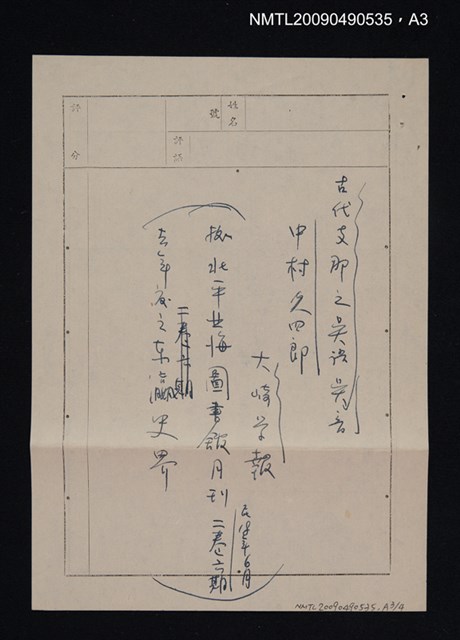 NMTL20090490535，A3
姓名
號
評語
評分
古代支那之吳語吳音
中村久四郎
大崎学報
(據北平北海圖書館月刊二卷六期
民 年6月
二卷六期
去年度之东瀛史界)
NMTL20090490535.A3/4